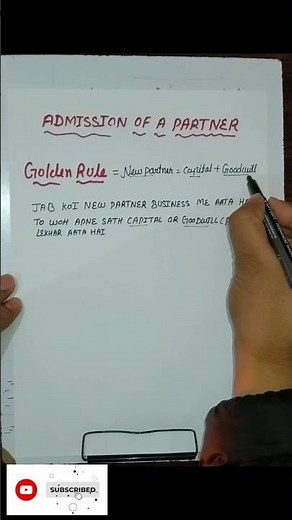 ADMISSION OF A PARTNER
Golden Rule = New partner = capital + Goodwill
JAB KOI NEW PARTNER BUSINESS ME AATA
TO WOH APNE SATH CAPITAL OR GOODWILL
LEKHAR AATA HAI
SUBSCRIBED